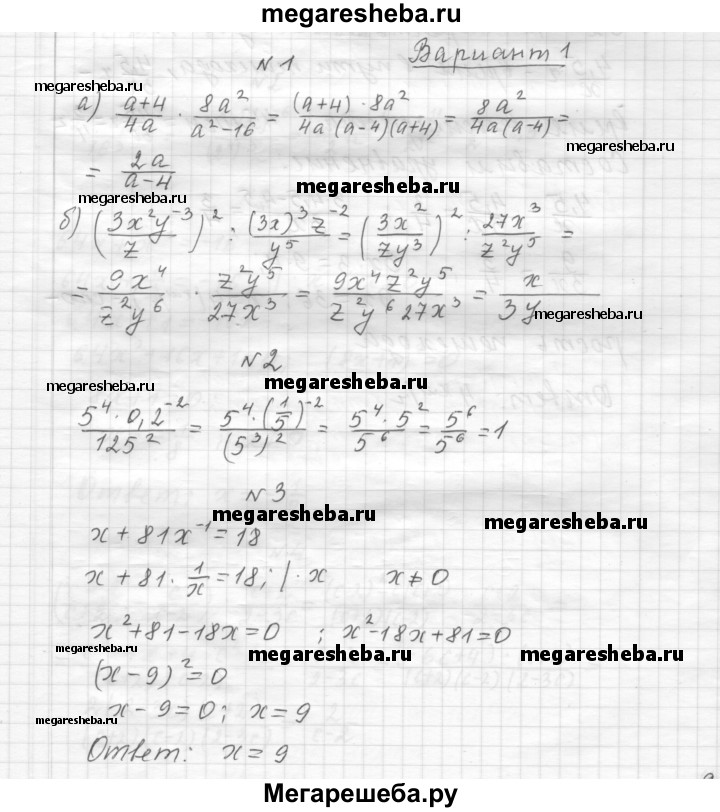 megaresheba.ru
Вариант 1
№1
megaresheba.ru
а) (a+4)/(4a) · (8a²)/(a²−16) = ((a+4)·8a²)/(4a(a−4)(a+4)) = (8a²)/(4a(a−4)) =
megaresheba.ru
= (2a)/(a−4)
megaresheba.ru
megaresheba.ru
б) ((3x²y⁻³)/z)² : ((3x)³z⁻²)/y⁵ = ((3x²)/(zy³))² : (27x³)/(z²y⁵) =
= (9x⁴)/(z²y⁶) · (z²y⁵)/(27x³) = (9x⁴z²y⁵)/(z²y⁶27x³) = x/(3y)
megaresheba.ru
№2
megaresheba.ru
(5⁴·0,2⁻²)/(125²) = (5⁴·(1/5)⁻²)/((5³)²) = (5⁴·5²)/(5⁶) = 5⁶/5⁶ = 1
№3
megaresheba.ru
megaresheba.ru
x + 81x⁻¹ = 18
x + 81 · 1/x = 18; | · x x ≠ 0
x² + 81 − 18x = 0 ; x² − 18x + 81 = 0
megaresheba.ru
megaresheba.ru
megaresheba.ru
(x − 9)² = 0
x − 9 = 0; x = 9
megaresheba.ru
Ответ: x = 9
Мегарешеба.ру